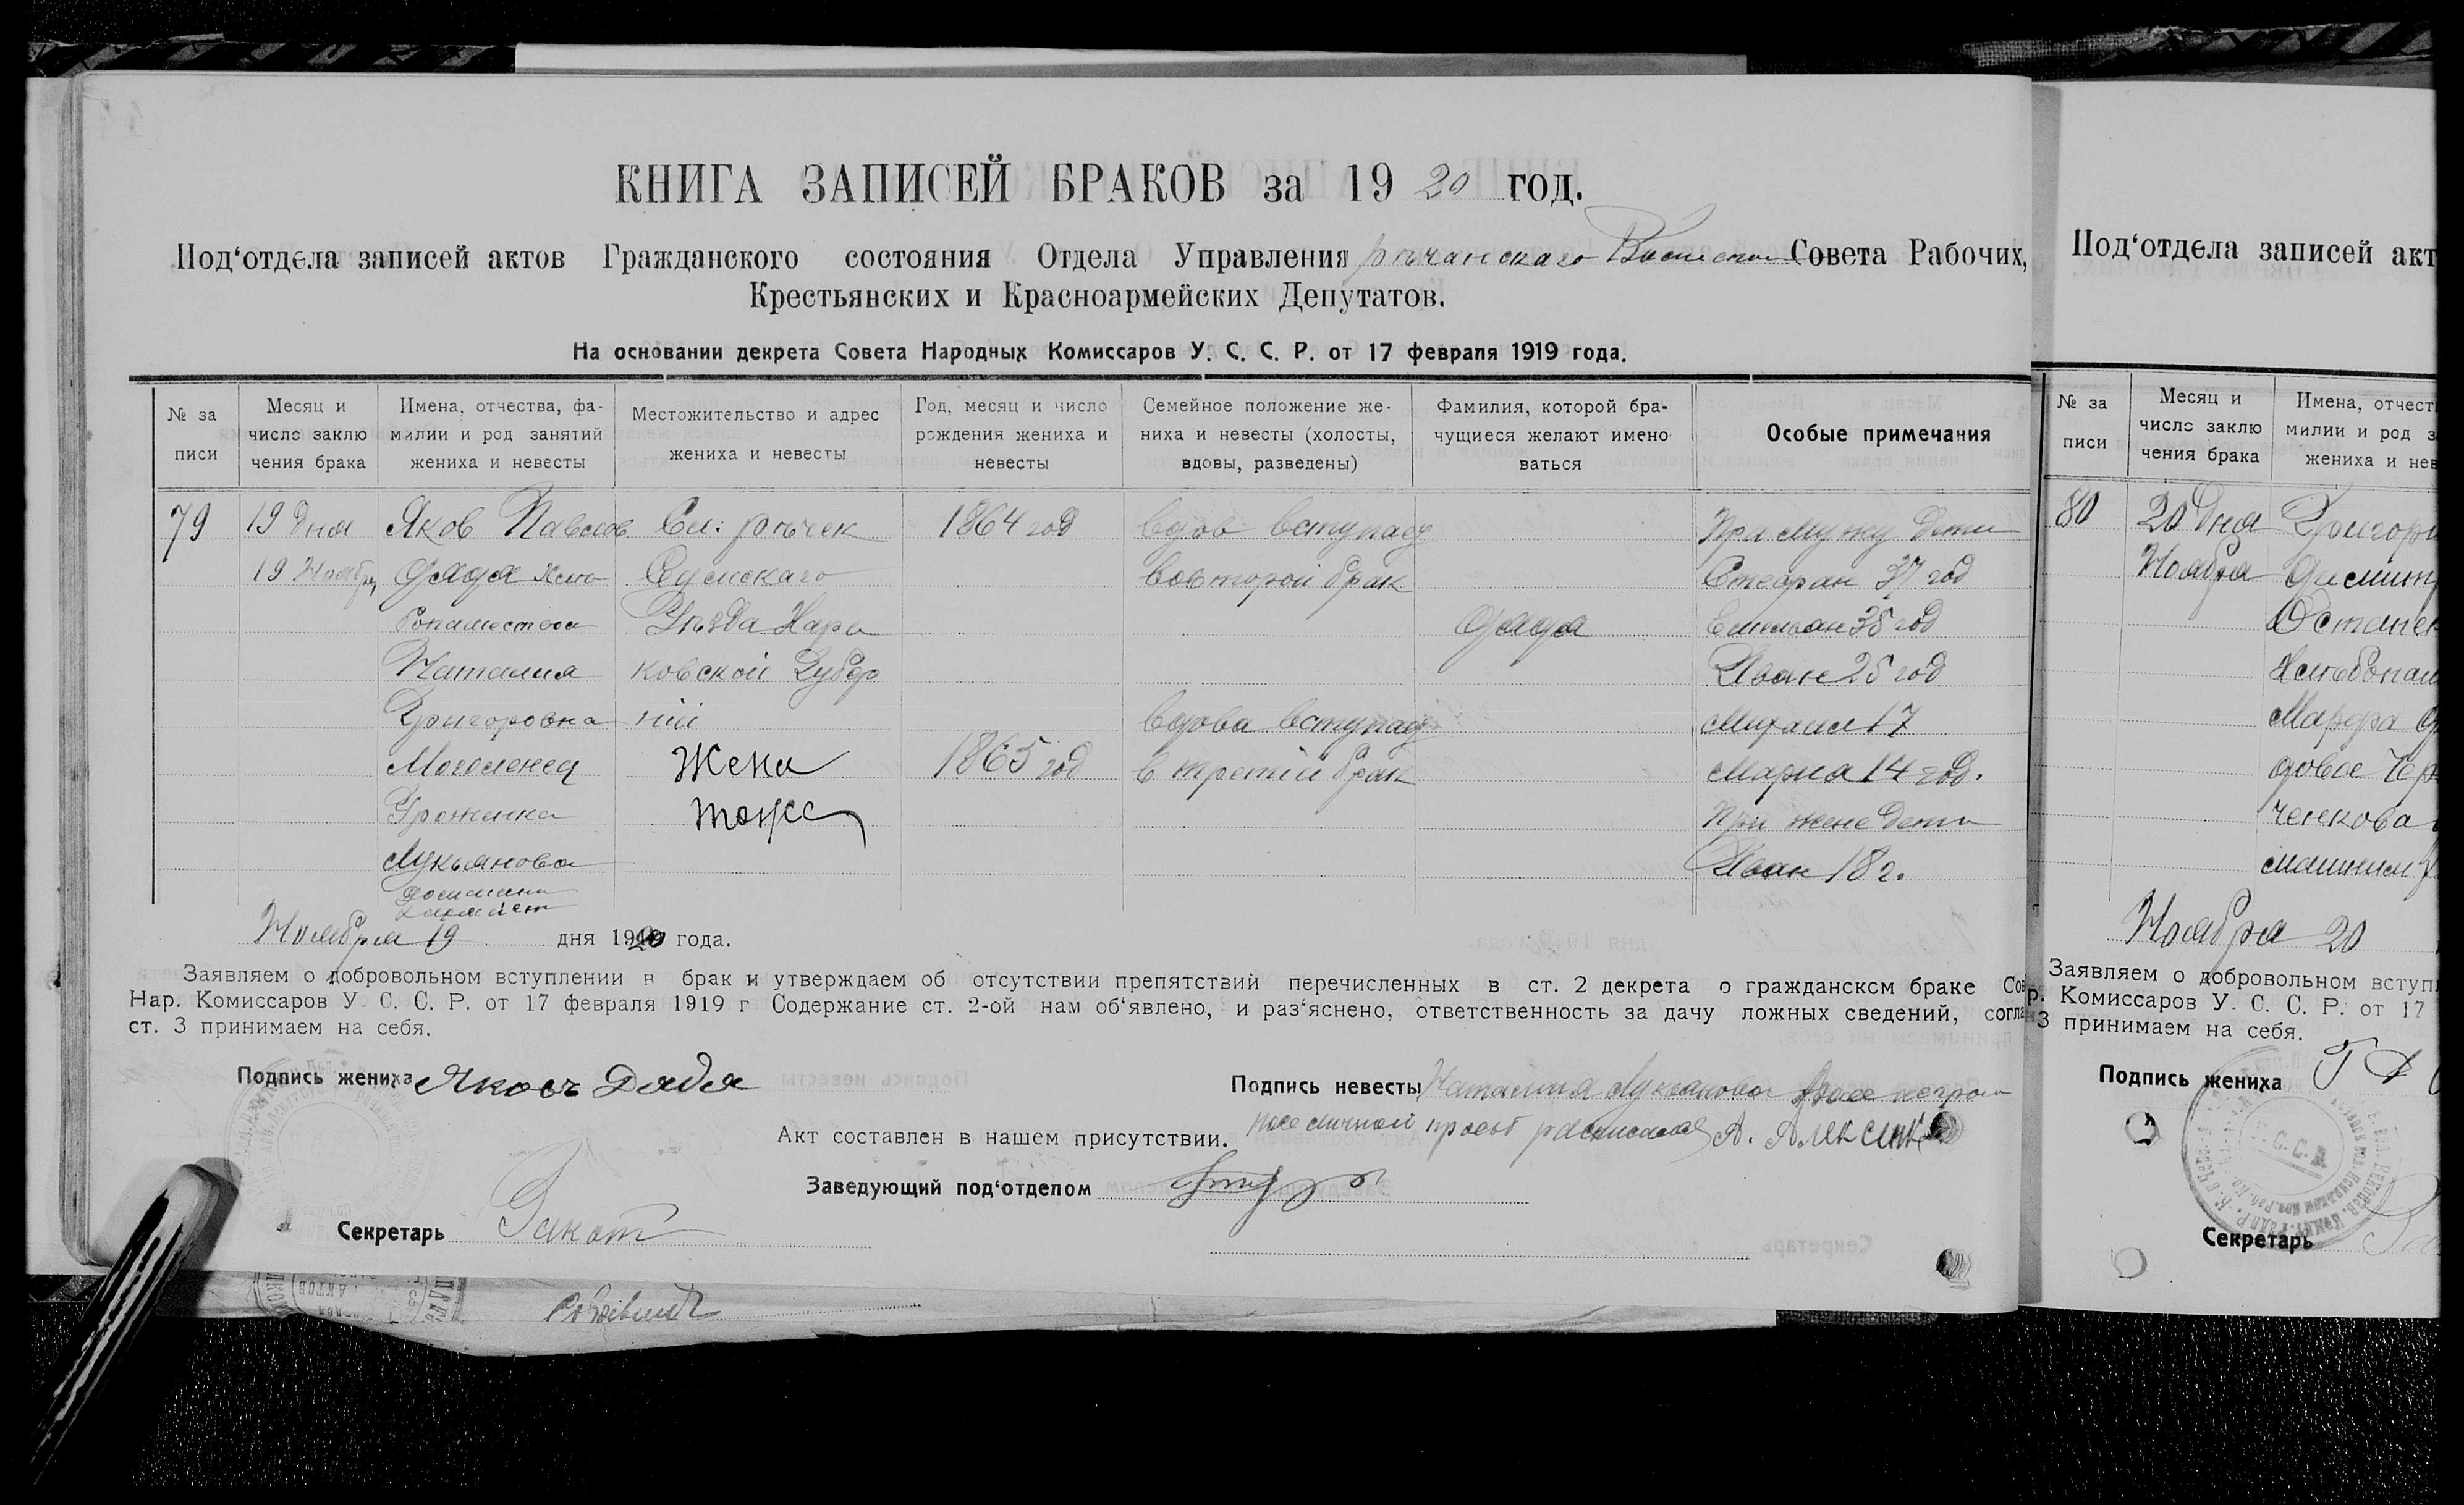 КНИГА ЗАПИСЕЙ БРАКОВ за 1920 год.
Под‘отдела записей актов Гражданского состояния Отдела Управления рѣчанскаго Совета Рабочих,
Крестьянских и Красноармейских Депутатов.
На основании декрета Совета Народных Комиссаров У. С. С. Р. от 17 февраля 1919 года.
№ за писи
Месяц и число заклю чения брака
Имена, отчества, фа- милии и род занятий жениха и невесты
Местожительство и адрес жениха и невесты
Год, месяц и число рождения жениха и невесты
Семейное положение же- ниха и невесты (холосты, вдовы, разведены)
Фамилия, которой бра- чущиеся желают имено ваться
Особые примечания
79
19 дня
19 Ноября
Яков Павлов
Дядя Хлѣ
бопашество
Наталия
Григоровна
Урожинка
Лукьянова
Сл: рѣчек
Сумскаго
Уѣзда Харь
ковской Губер
ній
Жена
тоже
1864 год
1865 год
вдов вступает
вовторой брак
вдова вступает
в третій брак
Дядя
При мужу дети
Стефан 37 год
Емельян 35 год
Иван 25 год
Михаил 17
Мария 14 год.
При жене дети
Иван 18 г.
Ноября 19 дня 1920 года.
Заявляем о добровольном вступлении в брак и утверждаем об отсутствии препятствий перечисленных в ст. 2 декрета о гражданском браке Сов
Нар. Комиссаров У. С. С. Р. от 17 февраля 1919 г Содержание ст. 2-ой нам об‘явлено, и раз‘яснено, ответственность за дачу ложных сведений, согла
ст. 3 принимаем на себя.
Подпись жениха Яковъ Дядя
Подпись невесты Наталия Лукьянова
личной просьб росписался А. Алексенко
Акт составлен в нашем присутствии.
Заведующий под‘отделом
Секретарь Закот
Под‘отдела записей акт
№ за писи
Месяц и число заклю чения брака
Имена, отчест милии и род з жениха и нев
80
20 дня
Ноября
Григори
Дмит
Остапен
Хлѣбопаш
Марфа
довое Чер
ченкова
Ноября 20
Заявляем о добровольном вступл
р. Комиссаров У. С. С. Р. от 17
3 принимаем на себя.
Подпись жениха
Секретарь